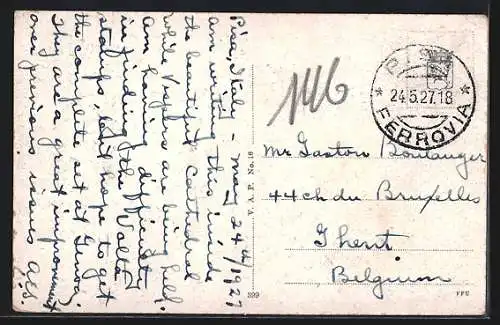 Pisa, Italy - May 24th/1927
am writing this inside
the beautiful Cathedral
while Vespers are being held.
am having difficulty
in finding the Volta
stamps, but hope to get
the complete set at Genova.
They are a great improvement
over previous issues
146
PISA
24.5.27.18
FERROVIA
Mr Gaston Boulanger
44 ch du Bruxelles
Ghent
Belgium
V. A. P. No. 16
399